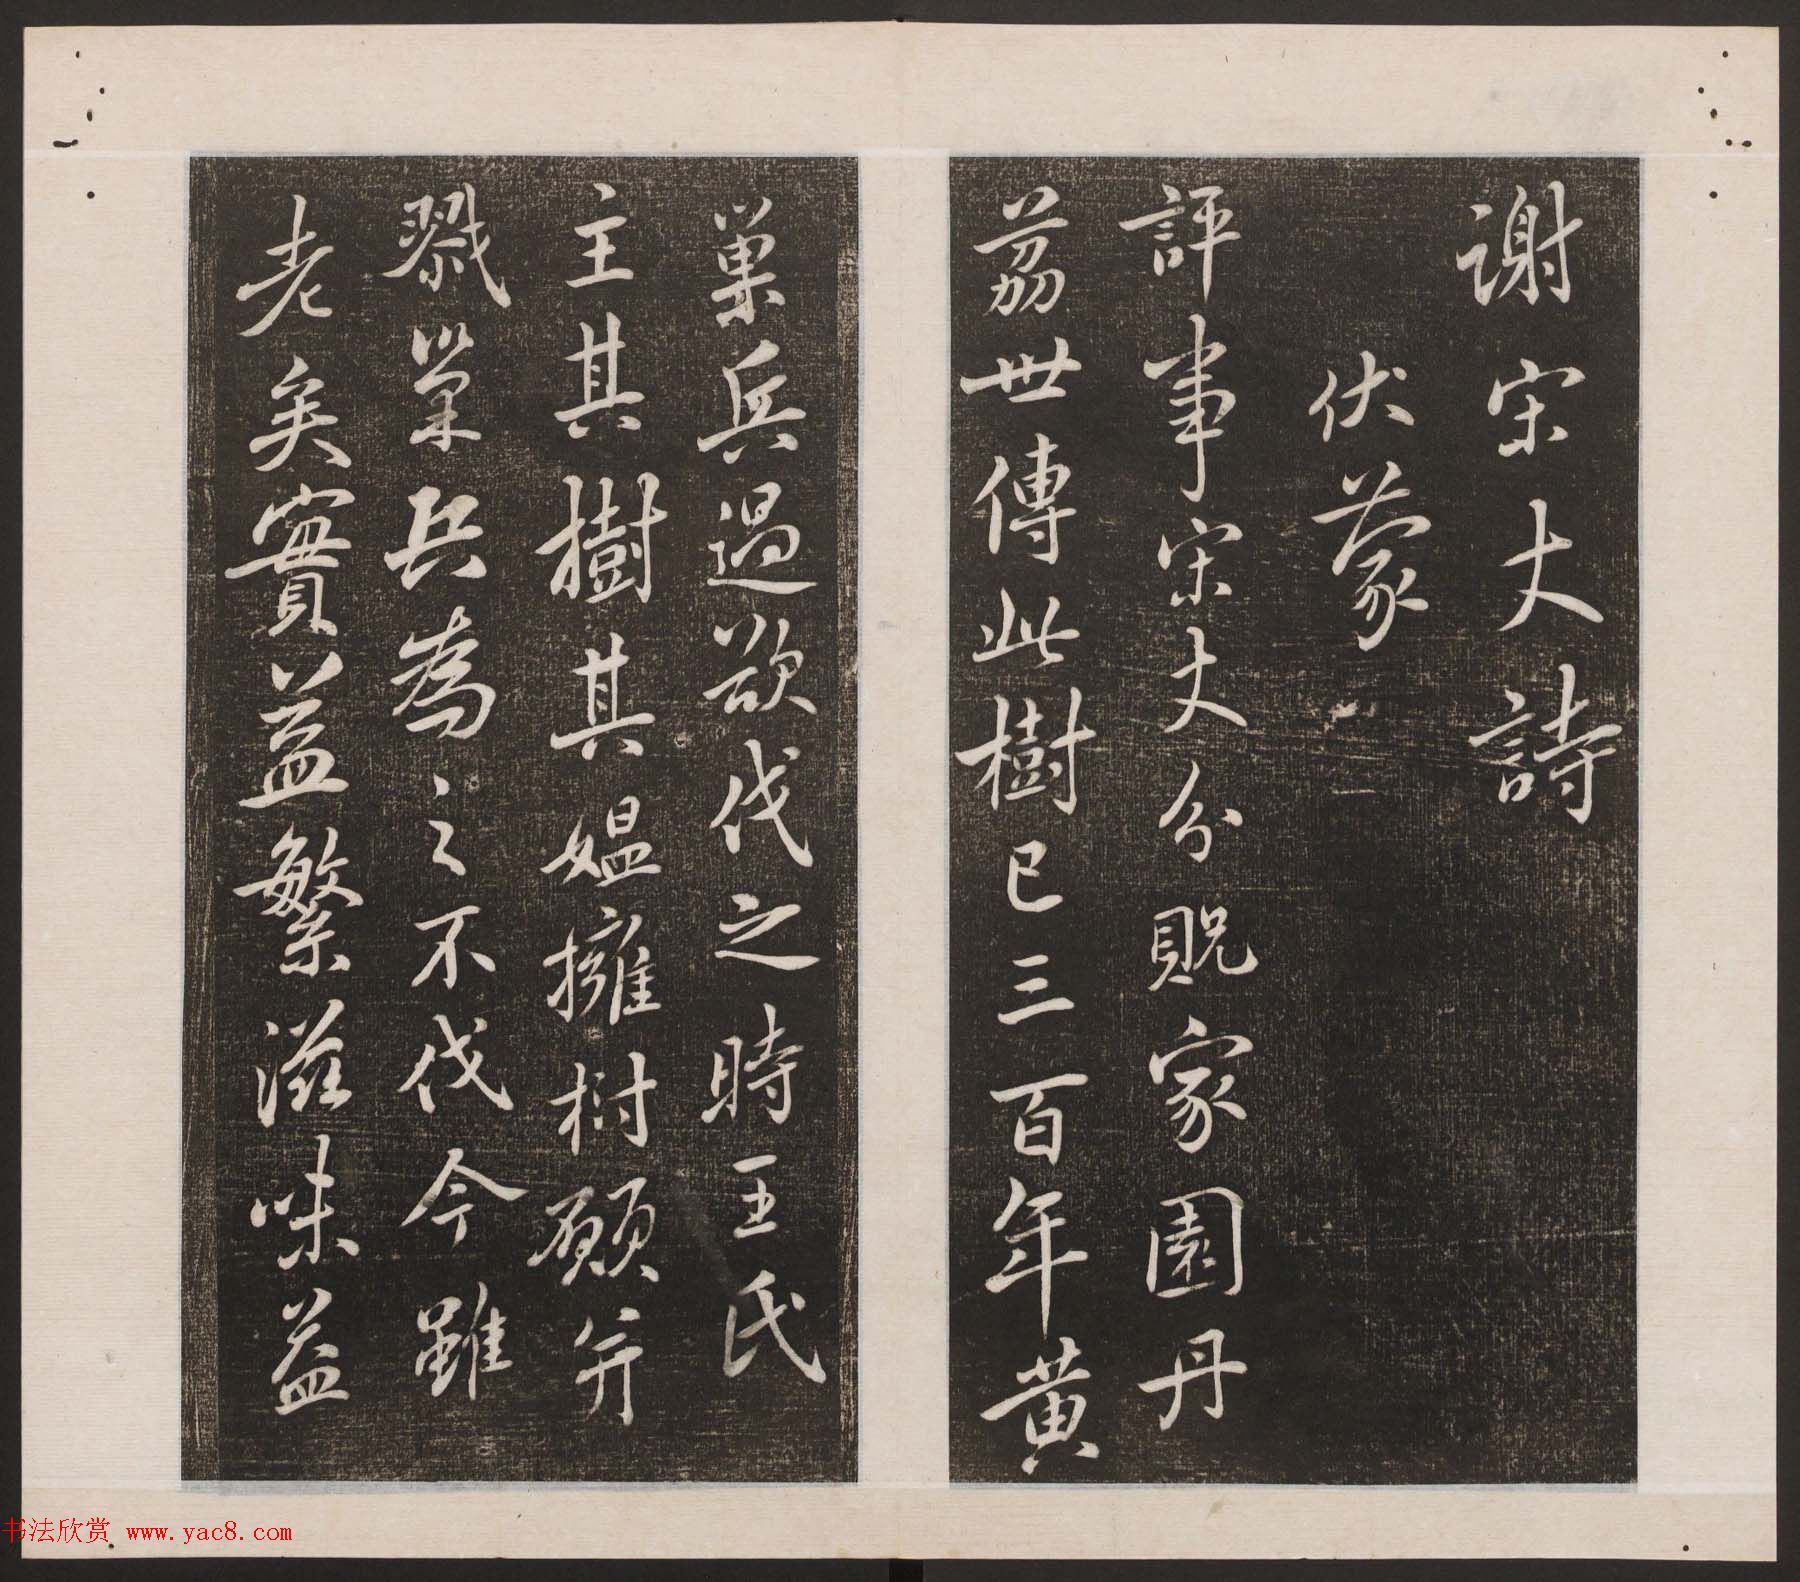 謝宋丈詩
伏蒙
評事宋丈分貺家園丹
荔世傳此樹已三百年黄
巢兵過欲伐之時王氏
主其樹其媼擁树願并
戮巢兵爲之不伐今雖
老矣實益繁滋味益
书法欣赏 www.yac8.com